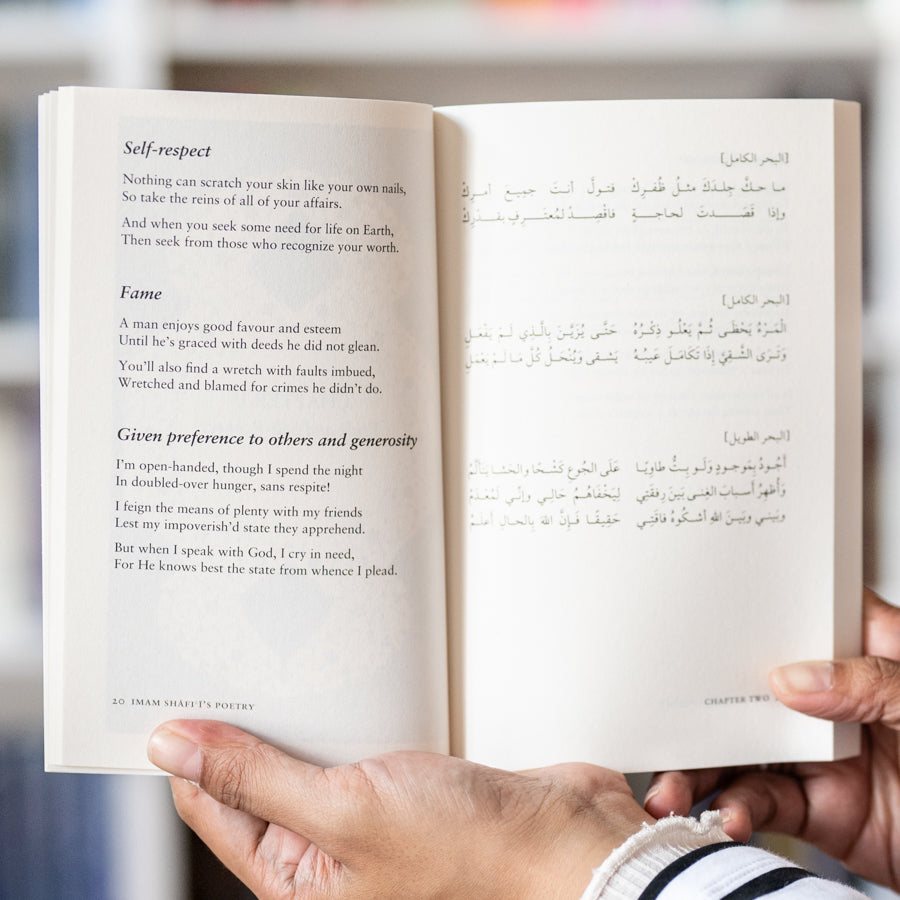 Self-respect
Nothing can scratch your skin like your own nails,
So take the reins of all of your affairs.
And when you seek some need for life on Earth,
Then seek from those who recognize your worth.
Fame
A man enjoys good favour and esteem
Until he's graced with deeds he did not glean.
You'll also find a wretch with faults imbued,
Wretched and blamed for crimes he didn't do.
Given preference to others and generosity
I'm open-handed, though I spend the night
In doubled-over hunger, sans respite!
I feign the means of plenty with my friends
Lest my impoverish'd state they apprehend.
But when I speak with God, I cry in need,
For He knows best the state from whence I plead.
20 IMAM SHĀFIʿI'S POETRY
[البحر الكامل]
ما حكَّ جِلدَكَ مثلُ ظُفرِكْ فتولَّ أنتَ جميعَ أمرِكْ
وإذا قَصَدتَ لحاجةٍ فاقْصِدْ لمُعتَرِفٍ بقَدْرِكْ
[البحر الكامل]
الْمَرْءُ يَحْظَى ثُمَّ يَعْلُو ذِكْرُهُ حَتَّى يُزَيَّنَ بِالَّذِي لَمْ يَفْعَلِ
وَتَرَى الشَّقِيَّ إِذَا تَكَامَلَ عَيْبُهُ يَشْقَى وَيُنْحَلُ كُلَّ مَا لَمْ يَعْمَلِ
[البحر الطويل]
أَجُودُ بِمَوجودٍ وَلَو بِتُّ طاوِيًا عَلَى الجُوعِ كَشْحًا والحَشا يتألَّمُ
وَأُظهِرُ أسبابَ الغِنى بَينَ رِفقَتِي لِيَخْفَاهُمُ حَالِي وإنِّي لَمُعْدَمُ
وبَيني وبَينَ اللهِ أشكُوهُ فاقَتِي حَقِيقًا فَإِنَّ اللهَ بِالحالِ أعلَمُ
CHAPTER TWO